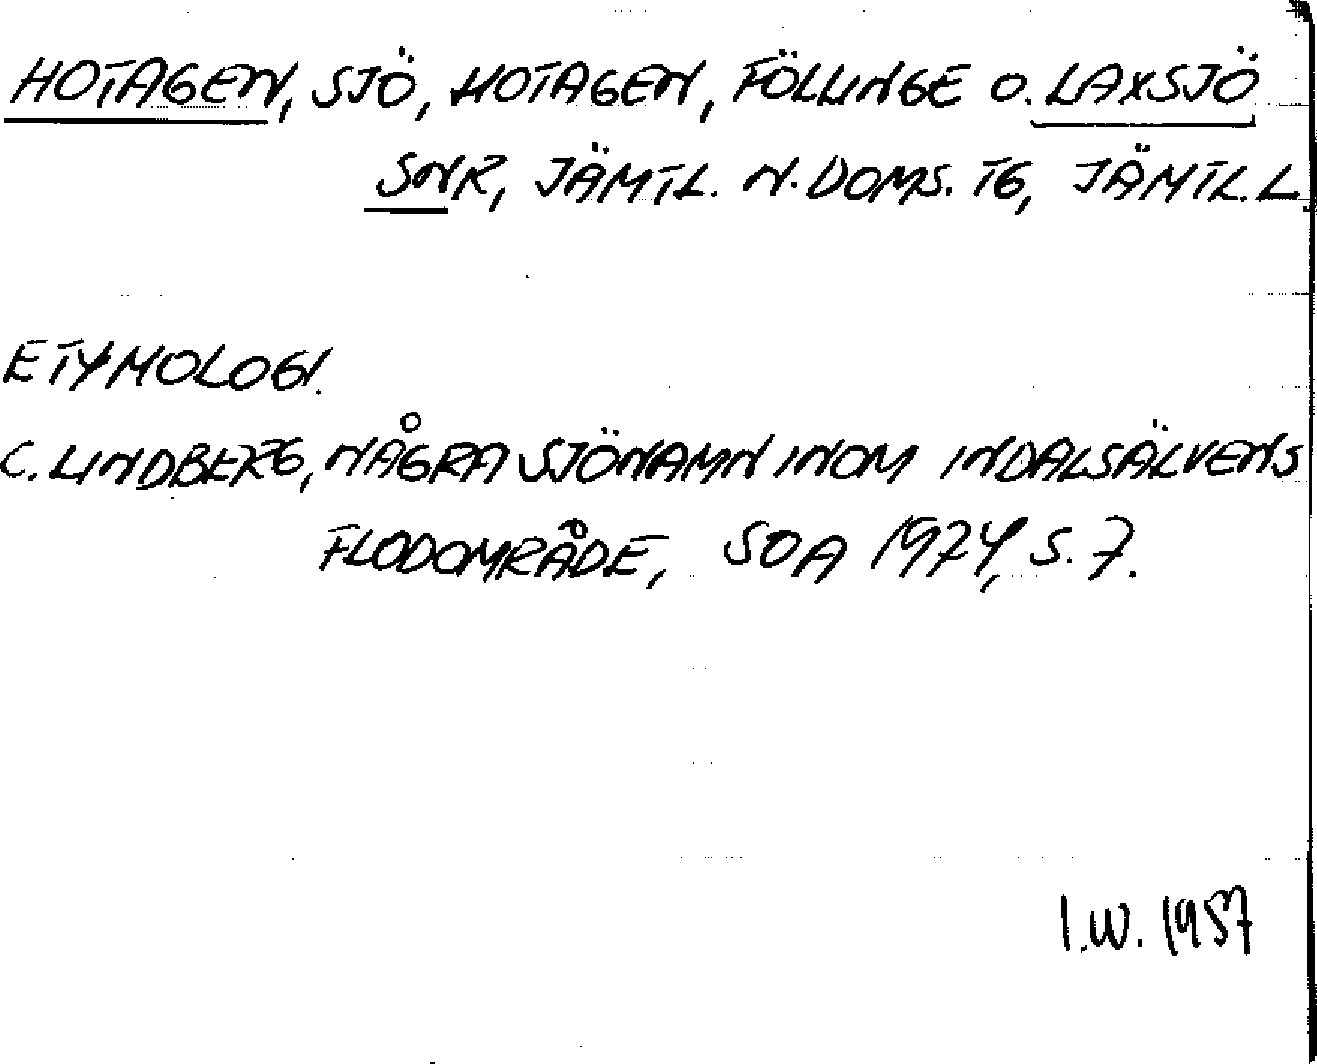 HOTAGEN, SJÖ, HOTAGEN, FÖLLINGE O. LAXSJÖ
SNR, JÄMTL. N. DOMS. TG, JÄMTL. L.
ETYMOLOGI.
C. LINDBERG, NÅGRA SJÖNAMN INOM INDALSÄLVENS
FLODOMRÅDE, SOA 1924, S. 7.
I.W. 1957